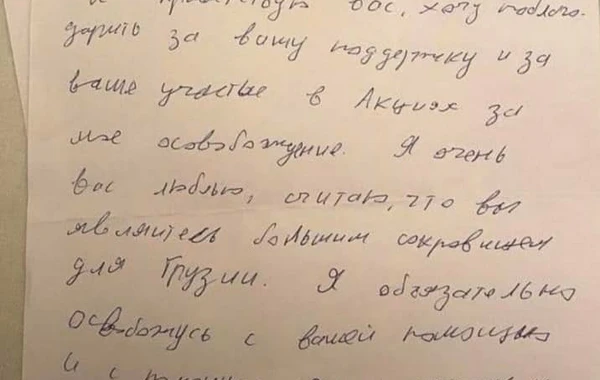 приветствую вас, хочу поблаго-
дарить за вашу поддержку и за
ваше участье в Акциях за
мое освобождение. Я очень
вас люблю, считаю, что вы
являетесь большим сокровищем
для Грузии. Я обязательно
освобожусь с вашей помощью
и с